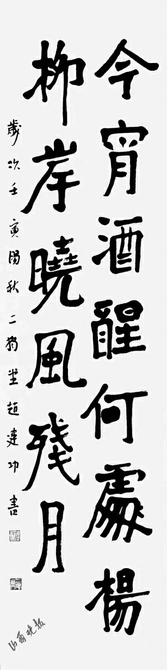 今宵酒醒何處楊
柳岸曉風殘月
歲次壬寅閏秋二翁坐趙建功書
山西晚报